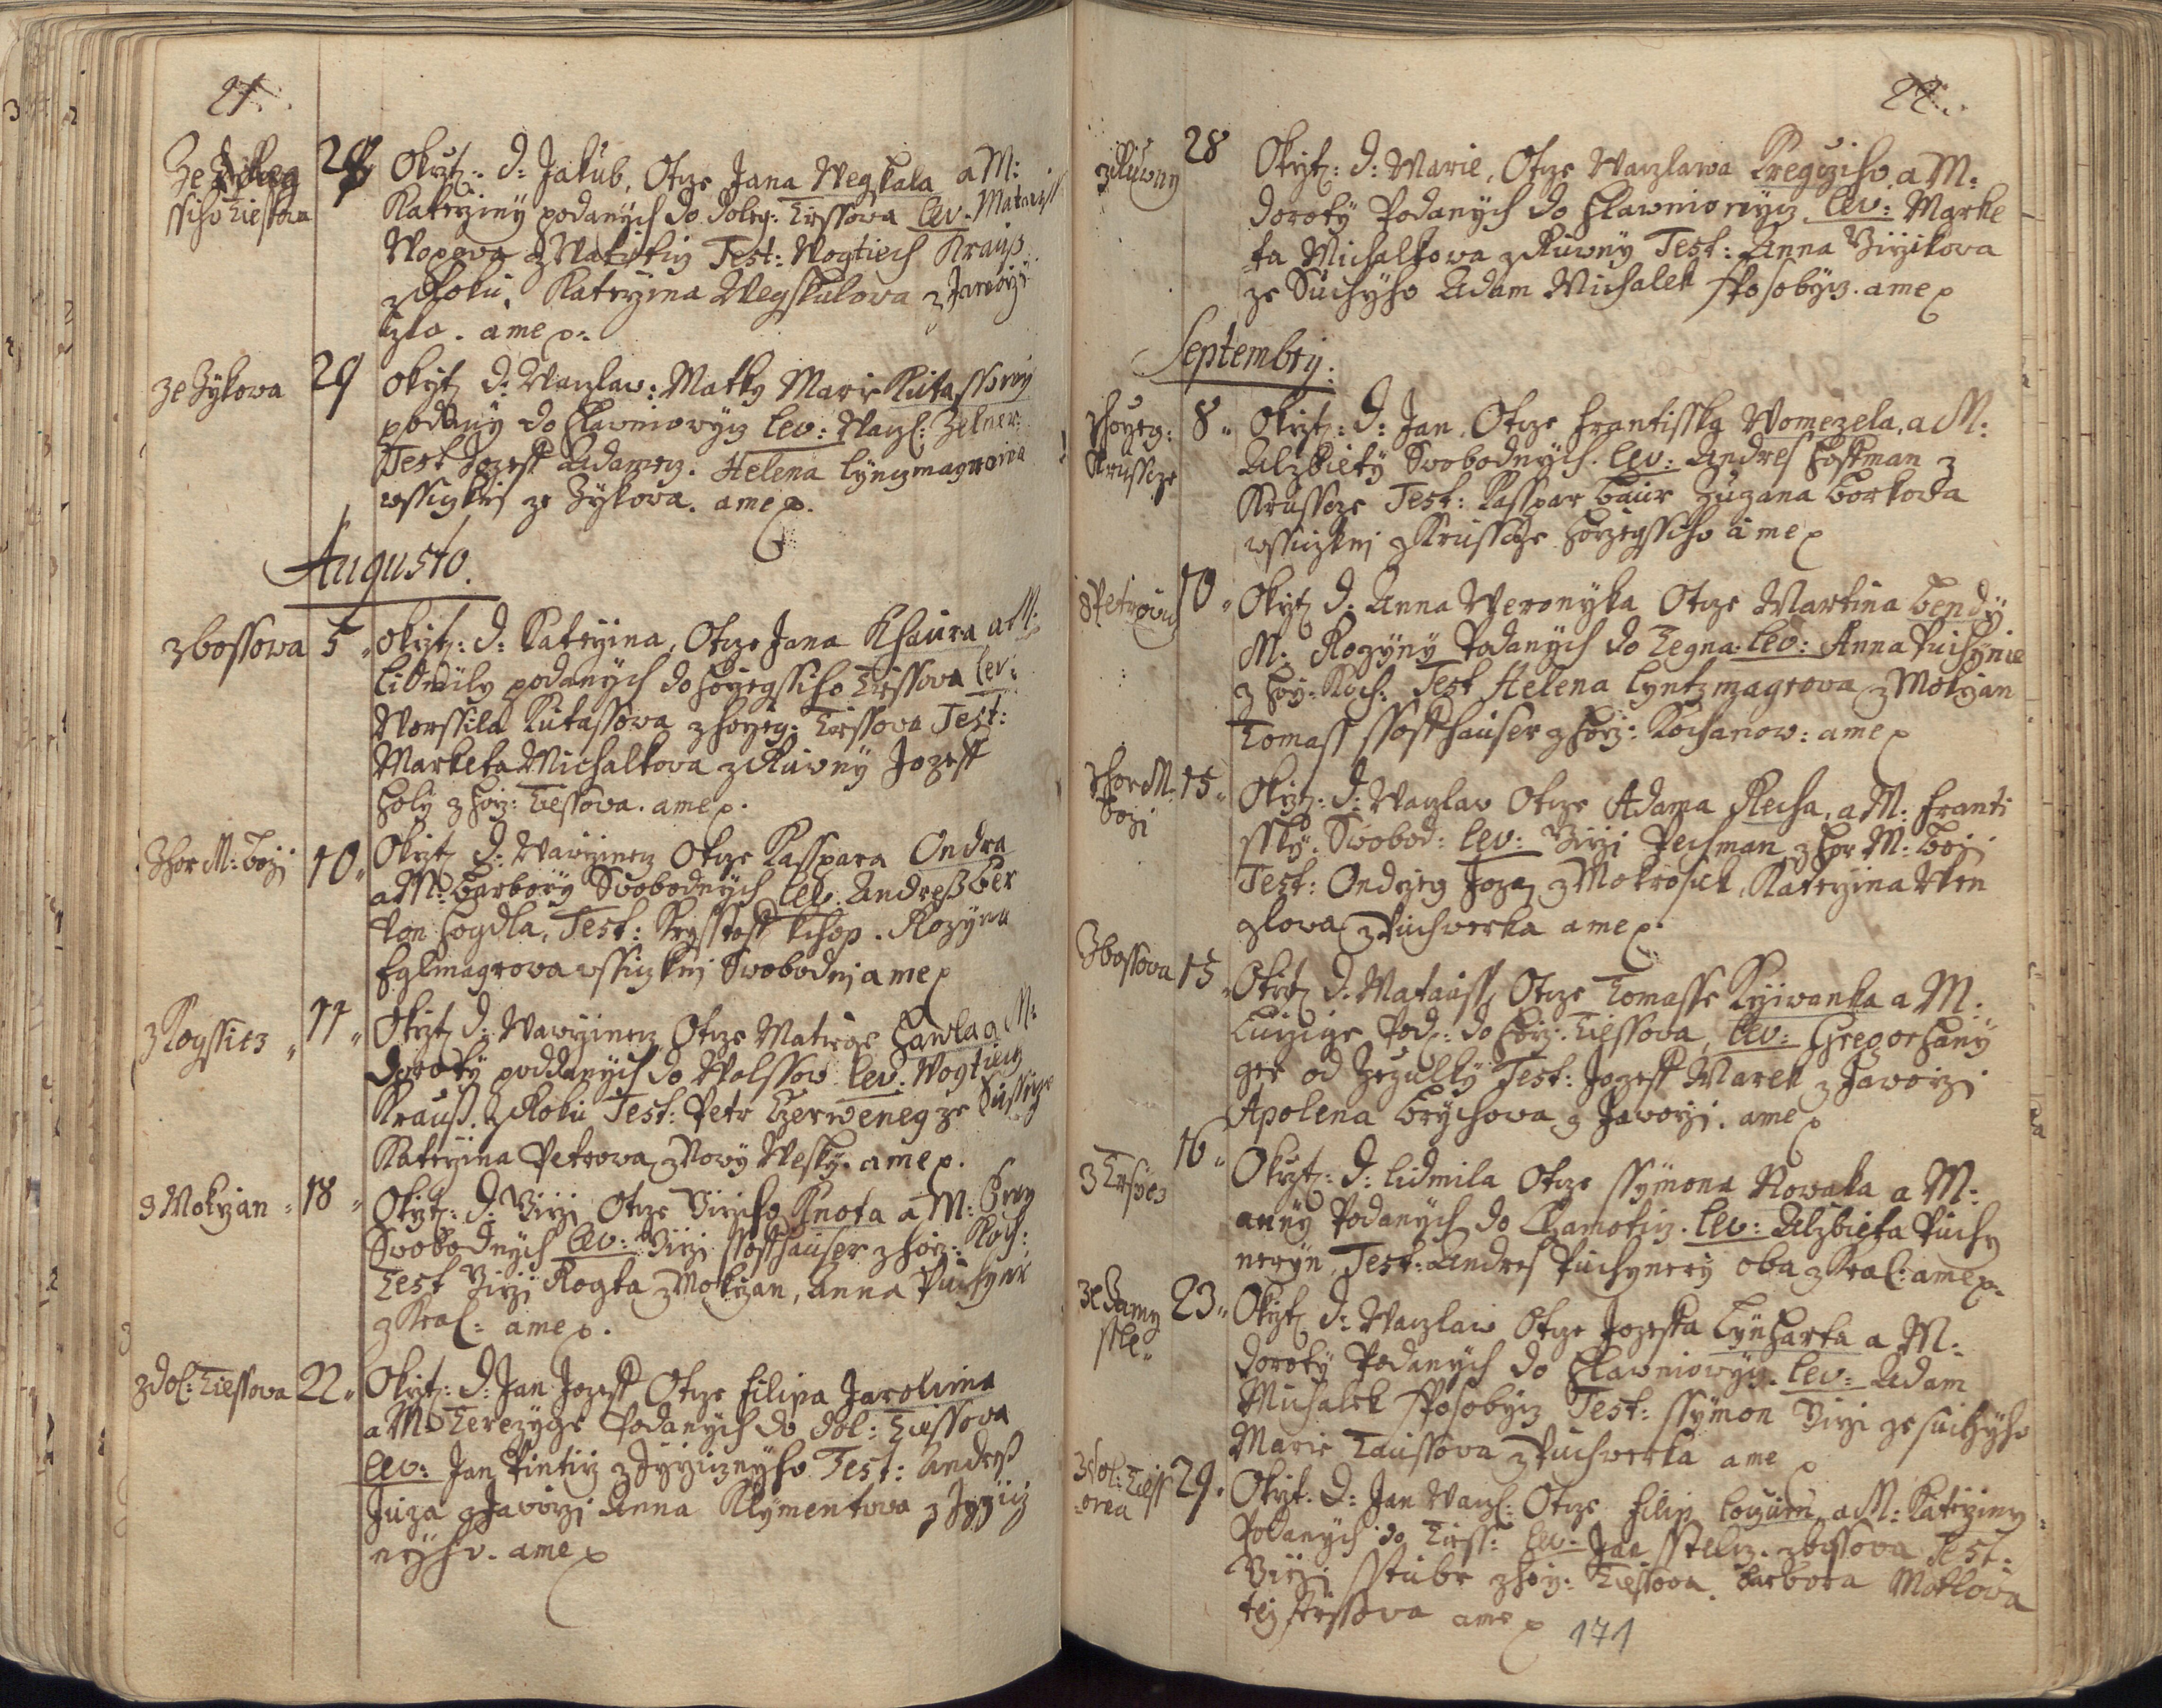 21.
Okrzt: d: Jakub, Otcze Jana Weyskala a M:
Katerziny podanych do doleg: Tiessova lev. Matausse
z Roku, Katerzina Wegskalova z Jaworzi
czla. ame p.
ze Zykowa 29 okrzt d: Waczlaw: Matky Marie Kutassowy
podany do Hlawniowicz lev: Wacl: Zelner:
Test Jozeff Adamecz. Helena Lynczmagrowa
wssiczkni ze Zykowa. ame p.
Augusto.
z bossowa 5 okrzt: d: Katerzina, Otcze Jana Khaura a M:
Lidmily podanych do horzegssiho Tiessova lev:
Worssila Kutassova z horzeg: Tiessova Test:
Marketa Michalkova z Ruwny Jozeff
Holy z horz: Tiessova. ame p.
Z hor M: Bozi 10. Okrzt d: Wawrzinecz Otcze Kasspara Ondra
a M: Barbory Swobodnych lev: Andreß Ber
ton Hogdla, Test: Krysstoff Kchop. Rozyna
Eglmagrova wssiczkni Swobodni ame p
z Kogssicz 11 Okrzt d: Wawrzinecz Otcze Matiege Hawla a M:
Doroty poddanych do Wolssow lev: Wogtiech
Krauß. z Roku Test: Petr Czerweneg ze Sussicze
Katerzina Petrowa z Nowy Wesky. ame p.
z Mokrzan 18 Okrzt: d: Jirzi Otcze Jirziho Knota a M: Ewy
Swobodnych lev: Jirzi Hoffhauser z horz: Koch:
Test Jirzi Rogta z Mokrzan, Anna Puchyner
z Kral: ame p.
z dol: Tiessova 22 Okrzt: d: Jan Jozeff Otcze Filipa Jarolima
a M: Terezyge Podanych do dol: Tiessova
lev: Jan Tintirz z Jzyczneho Test: Andreß
Juza z Javorzi Anna Klymentowa z Jzycz
nyho. ame p
22.
z Ruwny 28 Okrzt: d: Marie, Otcze Waczlawa Kregcziho a M:
Doroty Podanych do Hlawniowycz lev: Marke
ta Michalkowa z Ruwny Test: Anna Jirzikova
ze Suchyho Adam Michalek sposobycz. ame p
Septembry:
z horzeg: 8 Okrzt: d: Jan, Otcze Frantisska Nomezela, a M:
Krussecz Alzbiety Swobodnych. lev: Andres Hoffman z
Krussecz Test: Kasspar Baur Zuzana Borkowa
wssiczkni z Krussecz horzegssiho ame p
z Petrowicz 10 Okrzt d: Anna Weronyka Otcze Martina Bendy
M: Rozyny Podanych do Zegna. lev: Anna Puchynie
z horz: Koch: Test Helena Lyntzmagrowa z Mokrzan
Tomass Hoffhauser z horz: Kochanow: ame p
z hor M: Bozi 15 Okrzt: d: Waczlaw Otcze Adama Recha, a M: Franti
ssky. Swobod: lev: Jirzi Pechman z hor M: Bozi
Test: Ondrzeg Joza z Mokrosuk, Katerzina Wen
glowa z Puchwerka ame p.
Z bossova 15 Okrzt d: Matauss, Otcze Tomasse Krziwanka a M:
Luczige Pod: do horz: Tiessova, lev: Gregor Hany
ger od Zezulky Test: Jozeff Marek z Jaworzi
Apolena Brychowa z Javorzi. ame p
16 Okrzt: d: Lidmila Otcze Ssymona Nowaka a M:
anny Podanych do Chamoticz. lev: Alzbieta Puchy
neryn, Test: Andres Puchynery oba z Kral: ame p.
23 Okrzt d: Waczlaw Otcze Jozeffa Lynharta a M:
Doroty Podanych do Hlawniowycz. lev: Adam
Michalek sposobycz Test: Ssymon Jirzi ze suchyho
Marie Taussova z Puchwerka ame p
z dol: Tiess
ova 29. Okrzt: d: Jan Wacl: Otcze Filip a M: Katerziny
Podanych do Tiess: lev: z bossova Test:
Jirzi Sstube z horz: Tiessova. Barbora Motlova
tez z Tiessova ame p
171